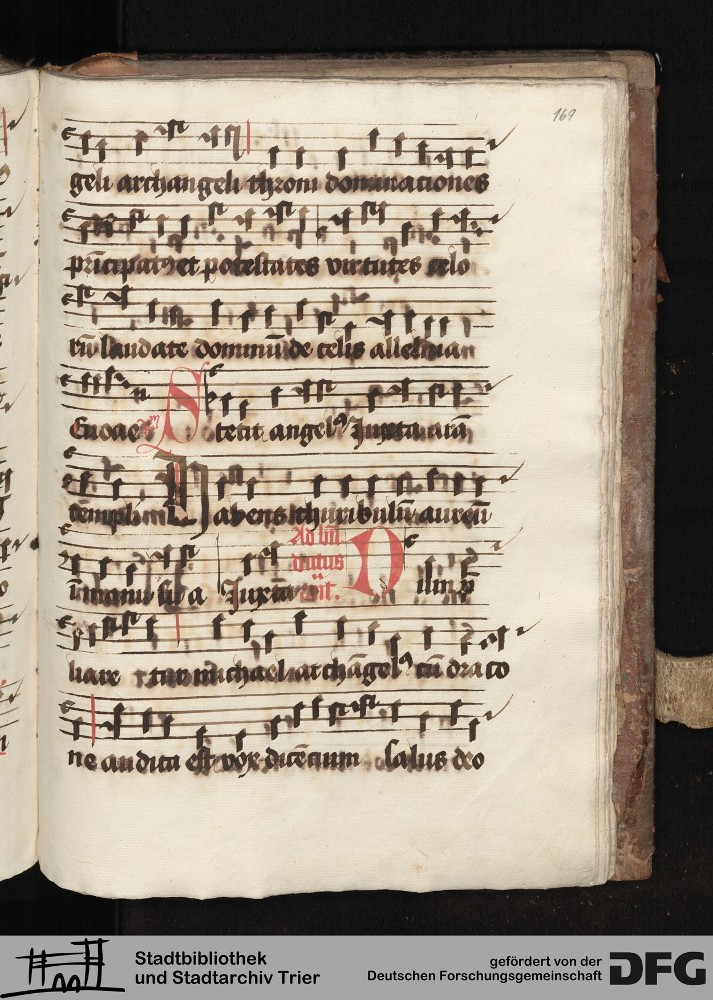 169
geli archangeli throni dominationes
principat⁹ et potestates virtutes celo
rū laudate dominū de celis alleluia
Euouae Stetit angel⁹ Juxta arā
templi Habens thuribulū aureū
in manu sua Juxta Ad bn̄ dictus an̄t. Dū p̄
liare tur michael archāgel⁹ cū draco
ne audita est vox dicētium Salus deo
Stadtbibliothek
und Stadtarchiv Trier
gefördert von der
Deutschen Forschungsgemeinschaft
DFG